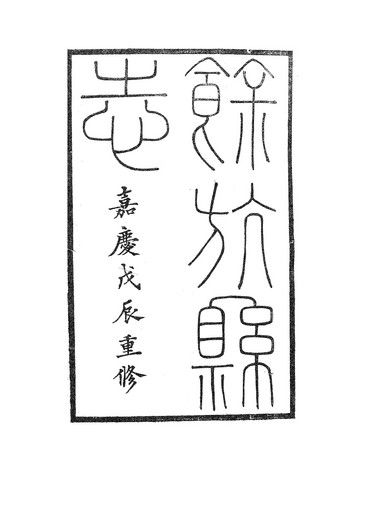 餘杭縣
志
嘉慶戊辰重修